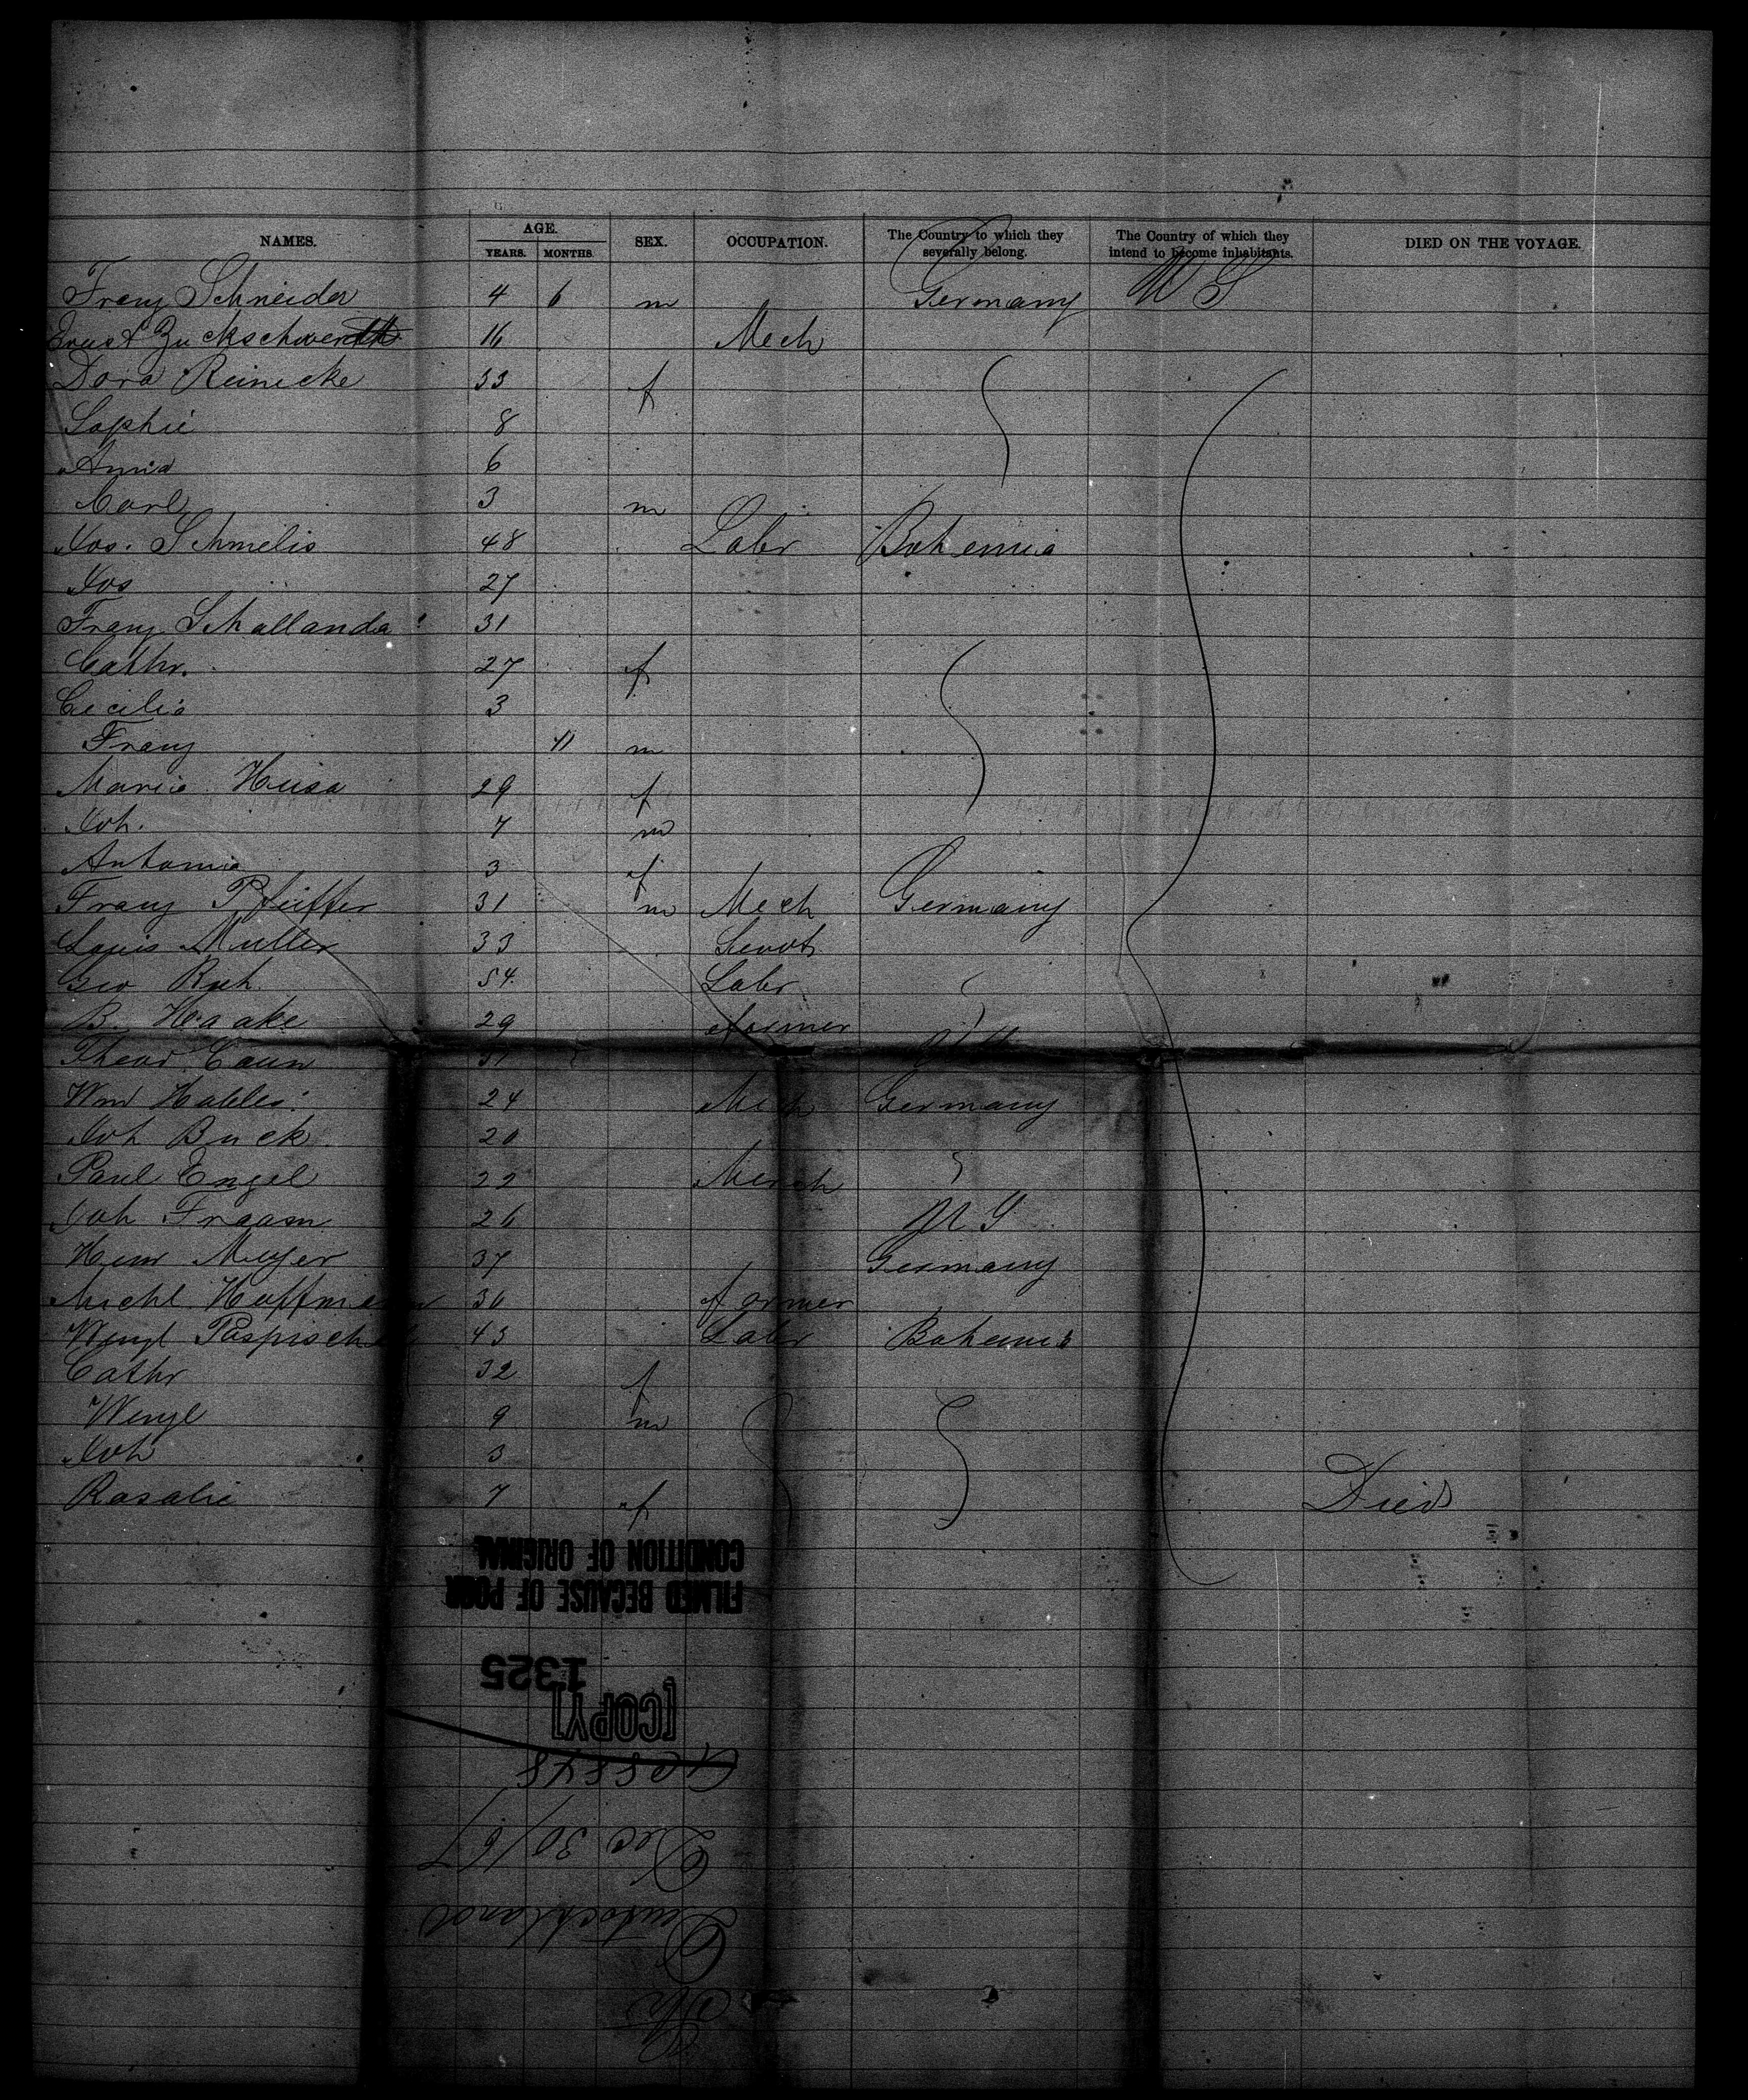 NAMES. AGE. YEARS. MONTHS. SEX. OCCUPATION. The Country to which they severally belong. The Country of which they intend to become inhabitants. DIED ON THE VOYAGE.
Franz Schneider 4 6 m Germany U S
Ernst Zuckschwerdt 16 Mech
Dora Reinecke 33 f
Sophie 8
Anna 6
Carl 3 m
Jos. Schmelis 48 Labr Bohemia
Jos 27
Franz Schallanda 31
Cathr. 27 f
Cecilia 3
Franz 11 m
Maria Husa 29 f
Joh. 7 m
Antonia 3 f
Franz Pfeiffer 31 m Mech Germany
Louis Muller 33 Servt
Geo Ruh 54 Labr
B. Haake 29 farmer
Theod. 31
Wm 24 Mech Germany
Joh Buck 20
Paul Engel 22 Merch
Joh Fraasm 26 U S
Henr Meyer 37 Germany
Michl Hoffmann 30 farmer
Wenzl Paspischel 43 Labr Bohemia
Cathr 32 f
Wenzl 9 m
Joh 3
Rosalie 7 f Died
FILMED BECAUSE OF POOR
CONDITION OF ORIGINAL
1325
[COPY]
Str
Deutschland
Dec 30/67